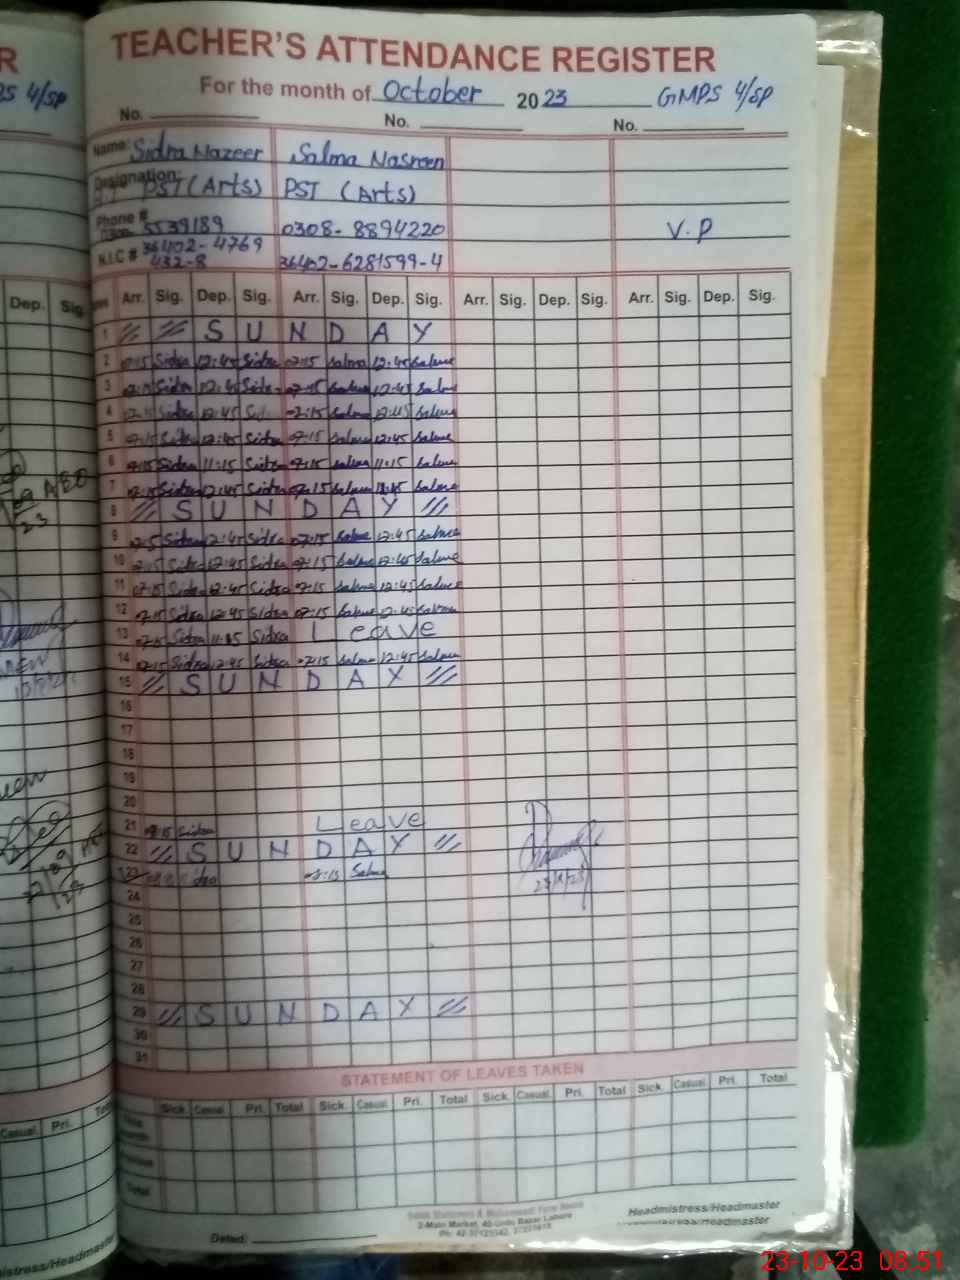 TEACHER'S ATTENDANCE REGISTER
For the month of October 2023 GMPS 4/SP
No. No. No.
Name: Sidra Nazeer Salma Nasreen
Designation: PST (Arts) PST (Arts)
Phone # 5539189 0308-8894220 V.P
N.I.C # 36402-4769
432-8 36402-6281599-4
Arr. Sig. Dep. Sig. Arr. Sig. Dep. Sig. Arr. Sig. Dep. Sig. Arr. Sig. Dep. Sig.
1 SUNDAY
2 07:15 Sidra 12:45 Sidra 07:15 Salma 12:45 Salma
3 07:15 Sidra 12:45 Sidra 07:15 Salma 12:45 Salma
4 07:15 Sidra 12:45 07:15 Salma 12:45 Salma
5 07:15 Sidra 12:45 Sidra 07:15 Salma 12:45 Salma
6 07:15 Sidra 11:15 Sidra 07:15 Salma 11:15 Salma
7 07:15 Sidra 12:45 Sidra 07:15 Salma 12:45 Salma
8 SUNDAY
9 07:15 Sidra 12:45 Sidra 07:15 Salma 12:45 Salma
10 07:15 Sidra 12:45 Sidra 07:15 Salma 12:45 Salma
11 07:15 Sidra 12:45 Sidra 07:15 Salma 12:45 Salma
12 07:15 Sidra 12:45 Sidra 07:15 Salma 12:45 Salma
13 07:15 Sidra 11:15 Sidra Leave
14 07:15 Sidra 12:45 Sidra 07:15 Salma 12:45 Salma
15 SUNDAY
16
17
18
19
20
21 Sidra Leave
22 SUNDAY
23 Sidra Salma
24
25
26
27
28
29 SUNDAY
30
31
STATEMENT OF LEAVES TAKEN
Sick. Casual. Pri. Total Sick. Casual. Pri. Total Sick. Casual. Pri. Total Sick. Casual. Pri. Total
Total
2-Main Market, 40-Urdu Bazar Lahore
Dated: Headmistress/Headmaster
23-10-23 08:51